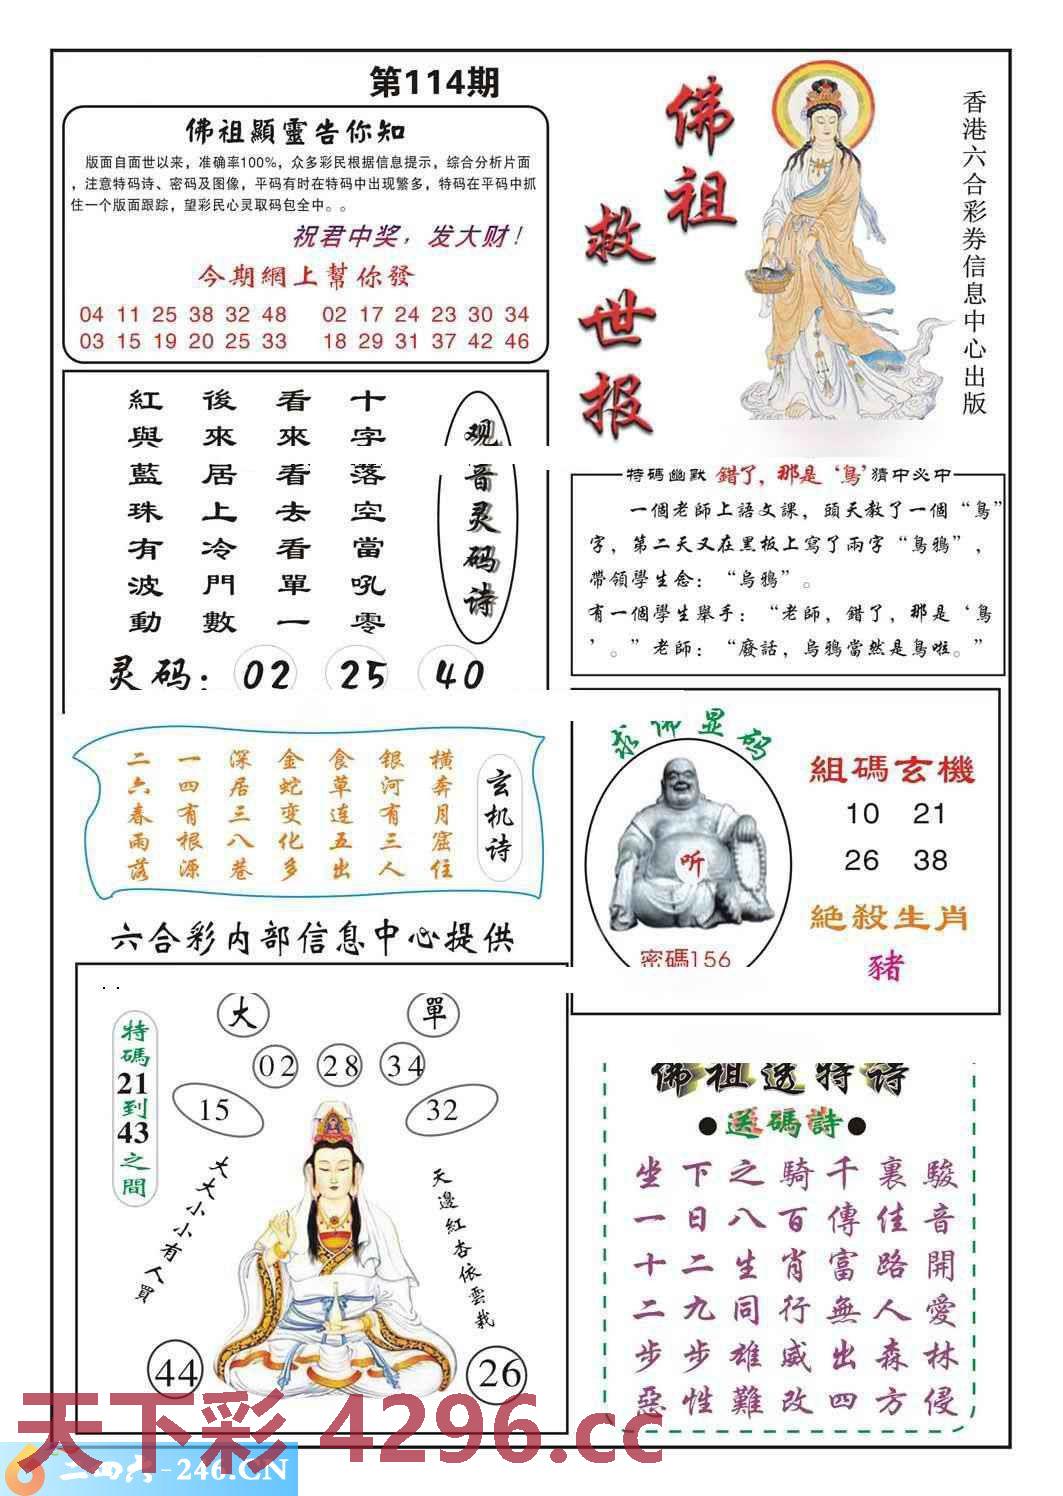 第114期
佛祖顯靈告你知
版面自面世以来，准确率100%，众多彩民根据信息提示，综合分析片面
，注意特码诗、密码及图像，平码有时在特码中出现繁多，特码在平码中抓
住一个版面跟踪，望彩民心灵取码包全中。。
祝君中奖，发大财！
今期網上幫你發
04 11 25 38 32 48 02 17 24 23 30 34
03 15 19 20 25 33 18 29 31 37 42 46
佛祖
救世报
香港六合彩券信息中心出版
观音灵码诗
十字落空當吼零
看來看去看單一
後來居上冷門數
紅與藍珠有波動
灵码：02 25 40
特碼幽默 錯了，那是‘鳥’猜中必中
一個老師上語文課，頭天教了一個“鳥”
字，第二天又在黑板上寫了兩字“烏鴉”，
帶領學生念：“烏鴉”。
有一個學生舉手：“老師，錯了，那是‘鳥
’。”老師：“廢話，烏鴉當然是鳥啦。”
玄机诗
橫奔月窟住
银河有三人
食草连五出
金蛇变化多
深居三八巷
一四有根源
二六春雨落
求佛显码
听
密碼156
組碼玄機
10 21
26 38
絕殺生肖
豬
六合彩内部信息中心提供
大
單
特碼21到43之間
02 28 34
15
32
大大小小有人買
天邊紅杏依雲栽
44
26
佛祖透特诗
●送碼詩●
駿音開愛林侵
裏佳路人森方
千傳富無出四
騎百肖行威改
之八生同雄難
下日二九步性
坐一十二步惡
天下彩 4296.cc
二四六-246.CN